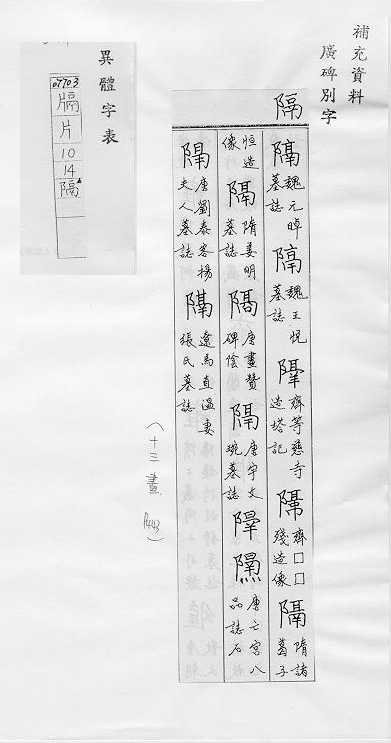 補充資料
廣碑別字
隔
隔魏元晫墓誌
隔魏王悅墓誌
齊等慈寺造塔記
齊□□殘造像
隔隋諸葛子
恒造像
隔隋姜明墓誌
隔唐畫贊碑陰
隔唐宇文琬墓誌
唐亡宮八品誌石
唐劉泰客楊夫人墓誌
遼馬直溫妻張氏墓誌
（十三畫 P443）
異體字表
07703
牖
片
10
14
隔